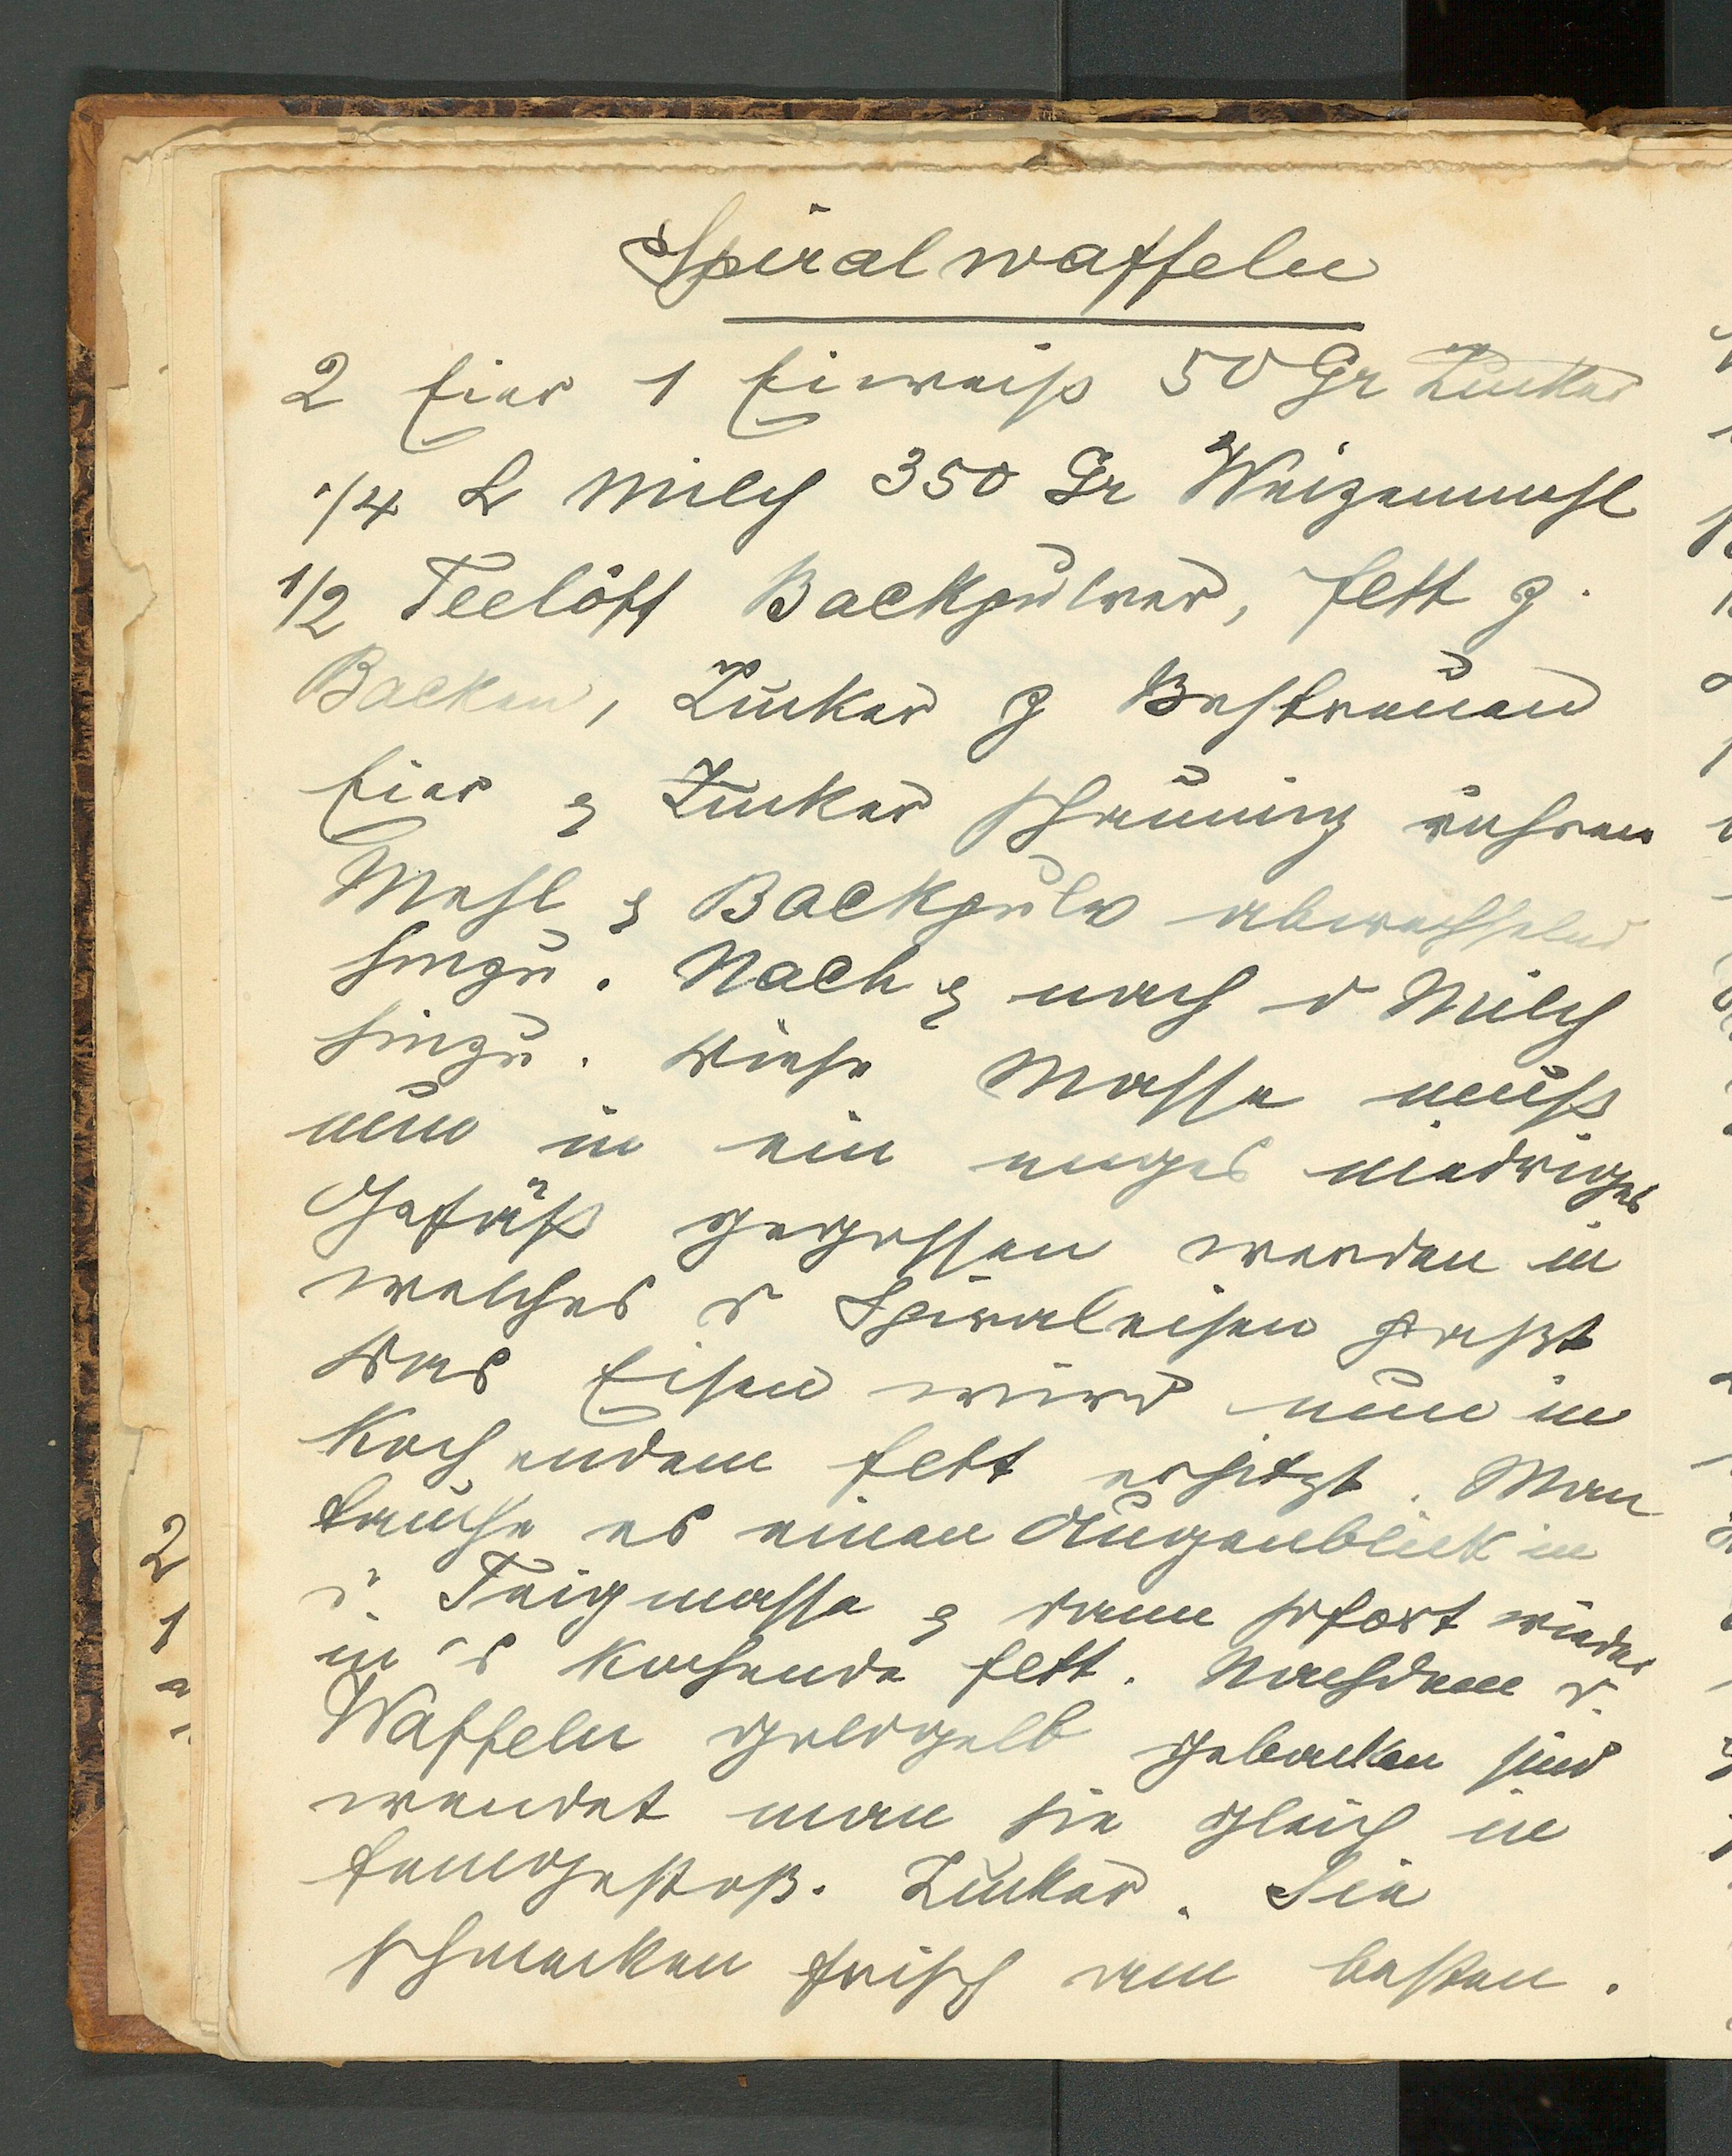 Spiralwaffeln
2 Eier 1 Eiweiß 50 Gr Zucker
1/4 L Milch 350 Gr Weizenmehl
1/2 Teelöff Backpulver, Fett z.
Backen, Zucker z Bestreuen
Eier & Zucker schaumig rühren
Mehl & Backpulv abwechselnd
hinzu. Nach & nach d Milch
hinzu. Diese Masse muß
nun in ein enges niedriges
Gefäß gegossen werden in
welches d Spiraleisen paßt
Das Eisen wird nun in
kochendem Fett erhitzt. Man
tauche es einen Augenblick in
d. Teigmasse & dann sofort wieder
in's kochende Fett. Nachdem d.
Waffeln goldgelb gebacken sind
wendet man sie gleich in
feingestoß. Zucker. Sie
schmecken frisch am besten.
2
1